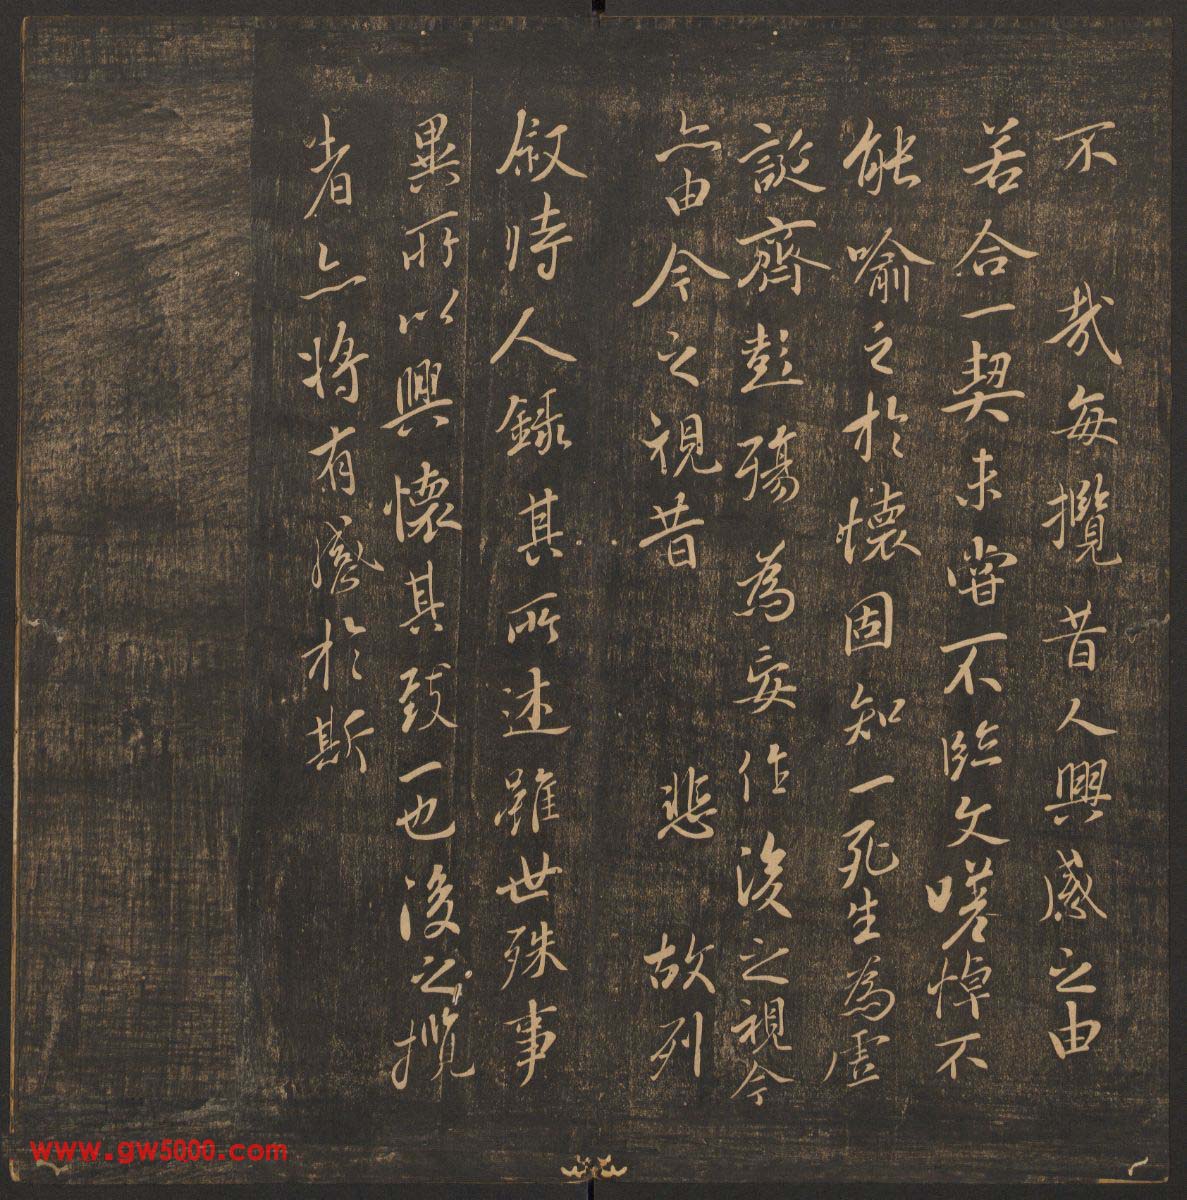 不 哉每攬昔人興感之由
若合一契未嘗不臨文嗟悼不
能喻之於懷固知一死生為虛
誕齊彭殤為妄作後之視今
亦由今之視昔 悲 故列
叙時人錄其所述雖世殊事
異所以興懷其致一也後之攬
者亦將有感於斯
www.gw5000.com